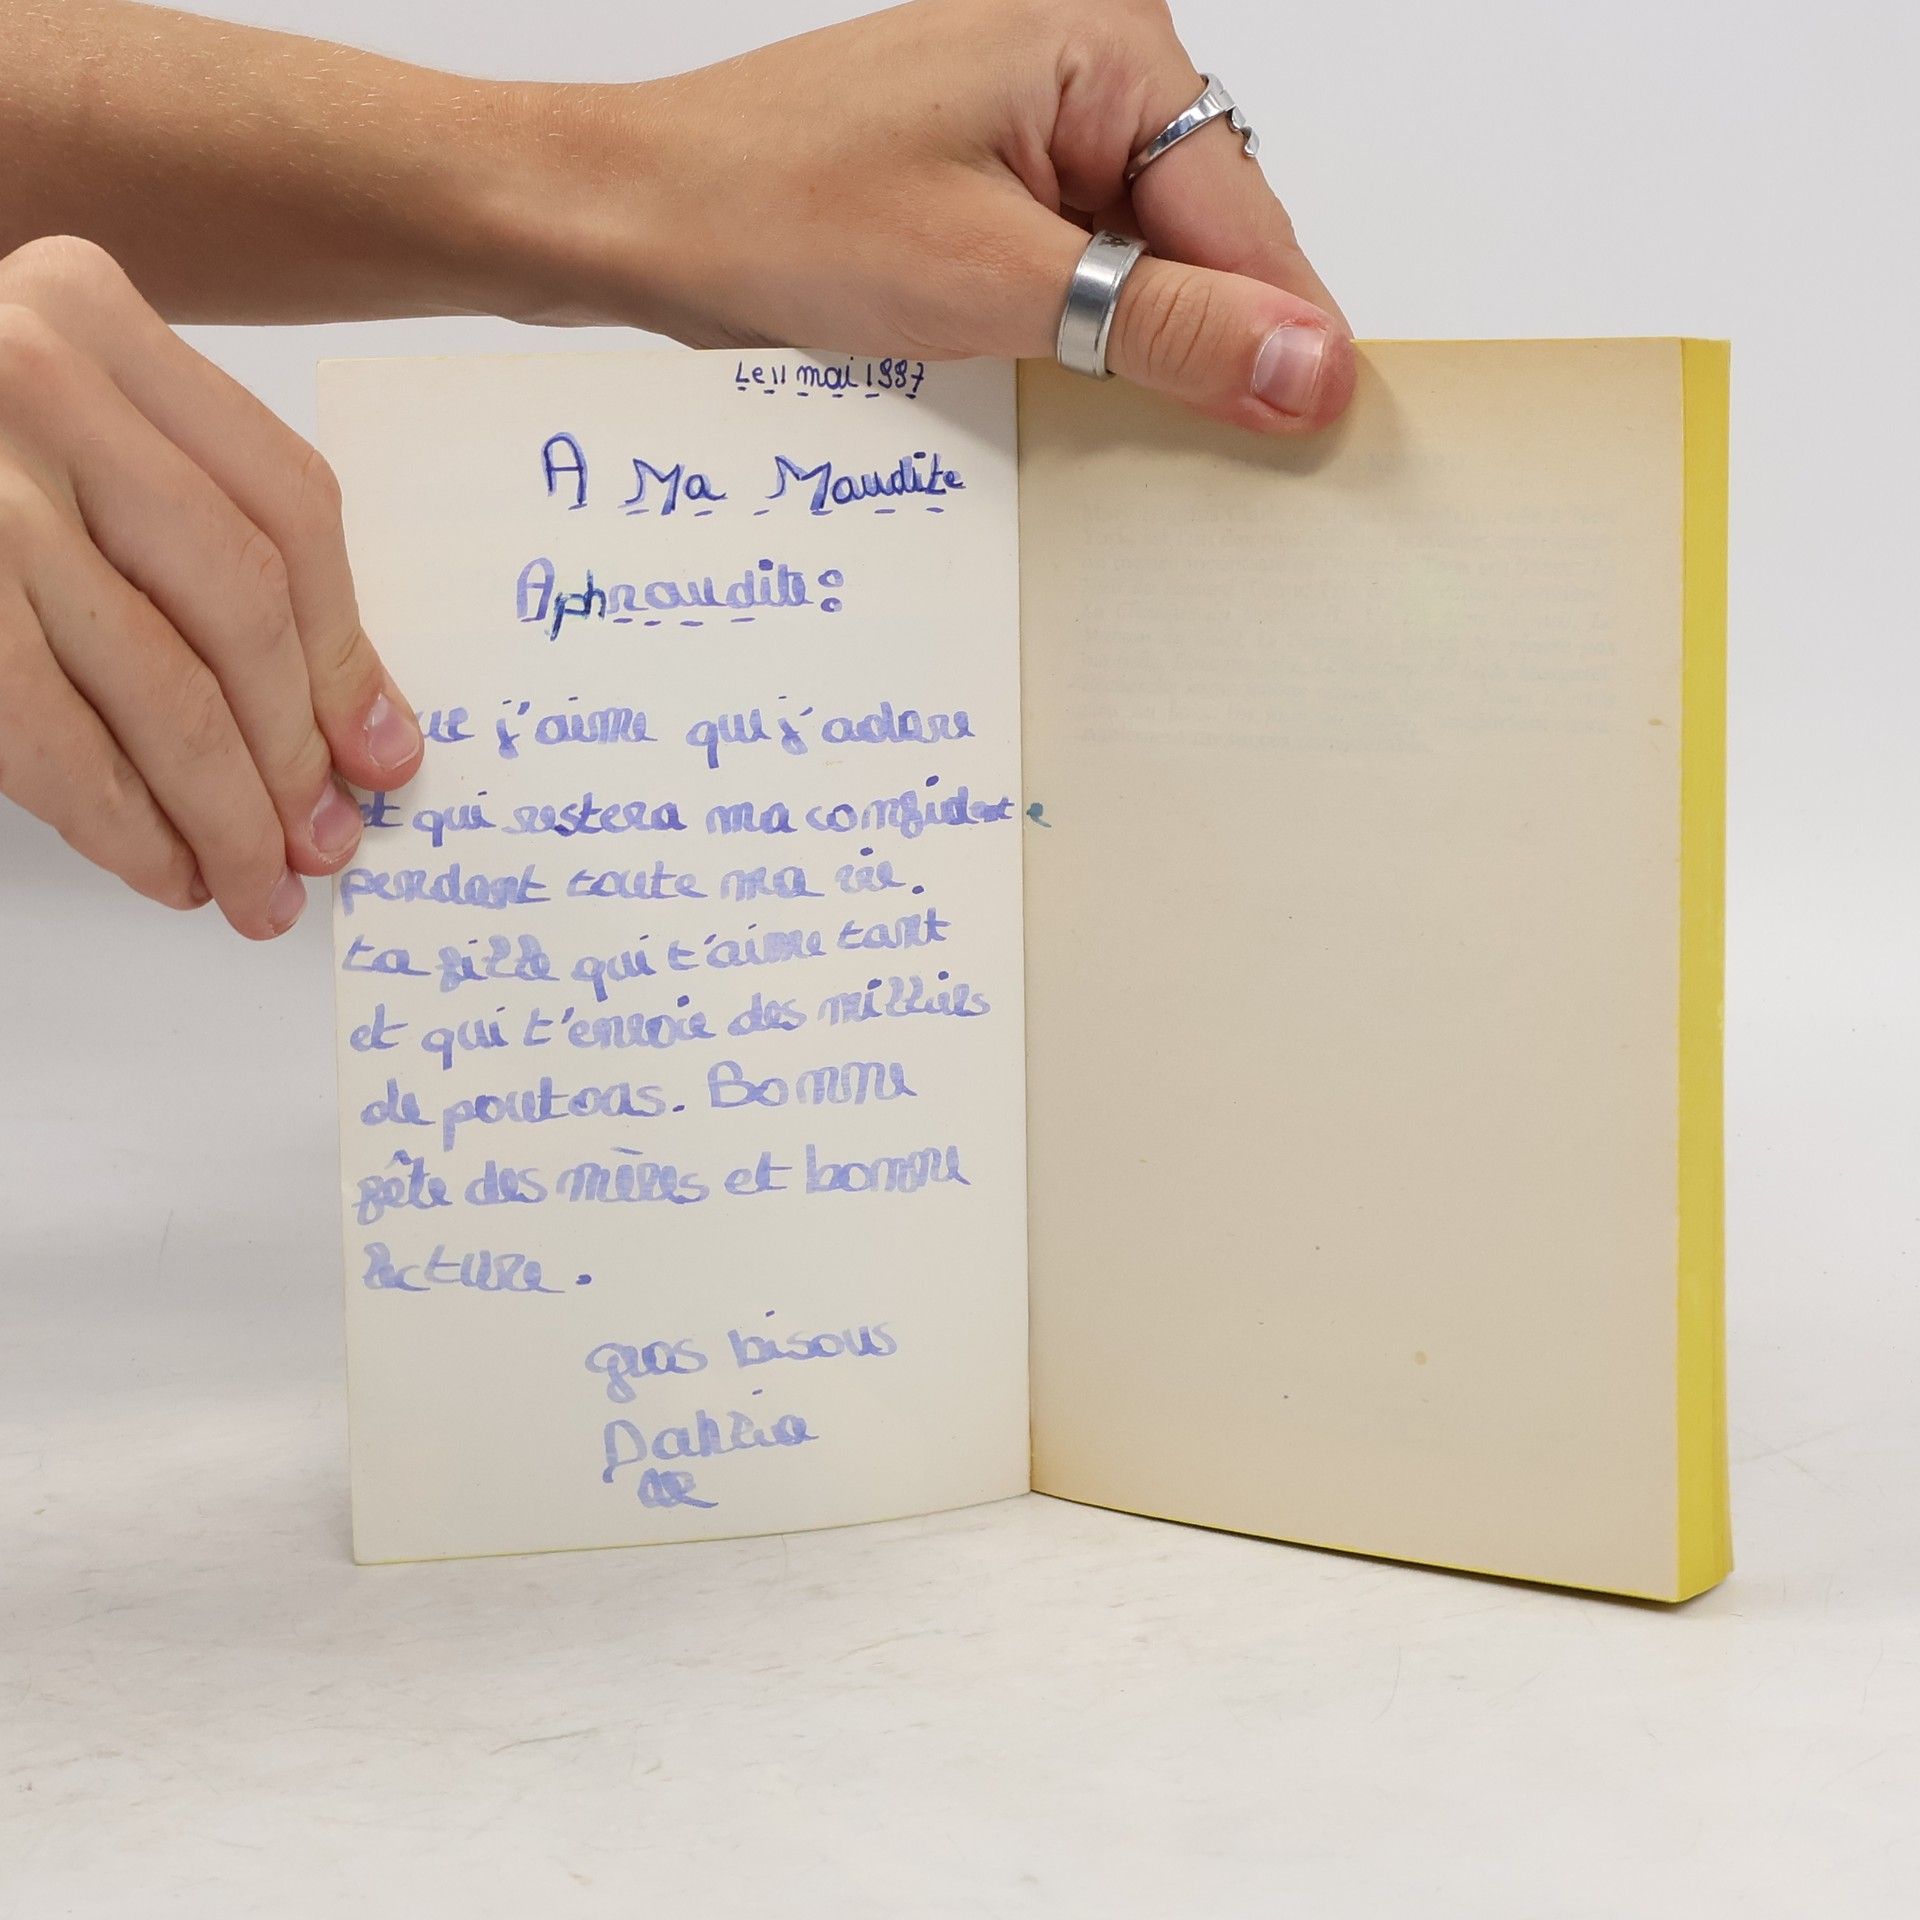 Le 11 mai 1997
A Ma Maudite
Aphraudite:
ue j'aime qui j'adore
et qui restera ma confidente
pendant toute ma vie.
ta fille qui t'aime tant
et qui t'envoie des milliers
de poutoas. Bonne
fête des mères et bonne
lecture.
gros bisous
Dahlia